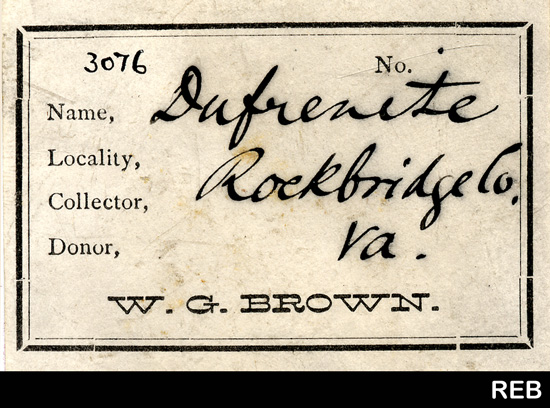 3076 No.
Name, Dufrenite
Locality, Rockbridge Co.
Collector,
Donor, Va.
W. G. BROWN.
REB